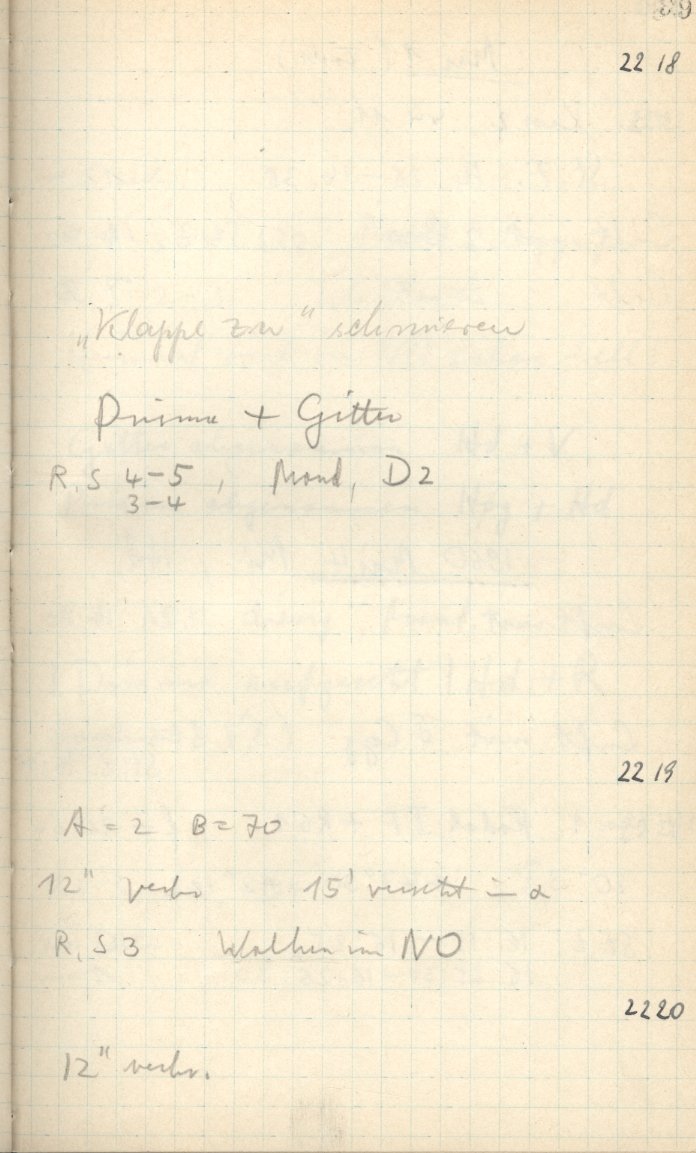 89
22 18
„Klappe zu“ schmieren
Prisma + Gitter
R, S 4-5, Mond, D2
3-4
22 19
A = 2 B = 70
12" verbr 15' versetzt in α
R, S 3 Wolken im NO
22 20
12" verbr.